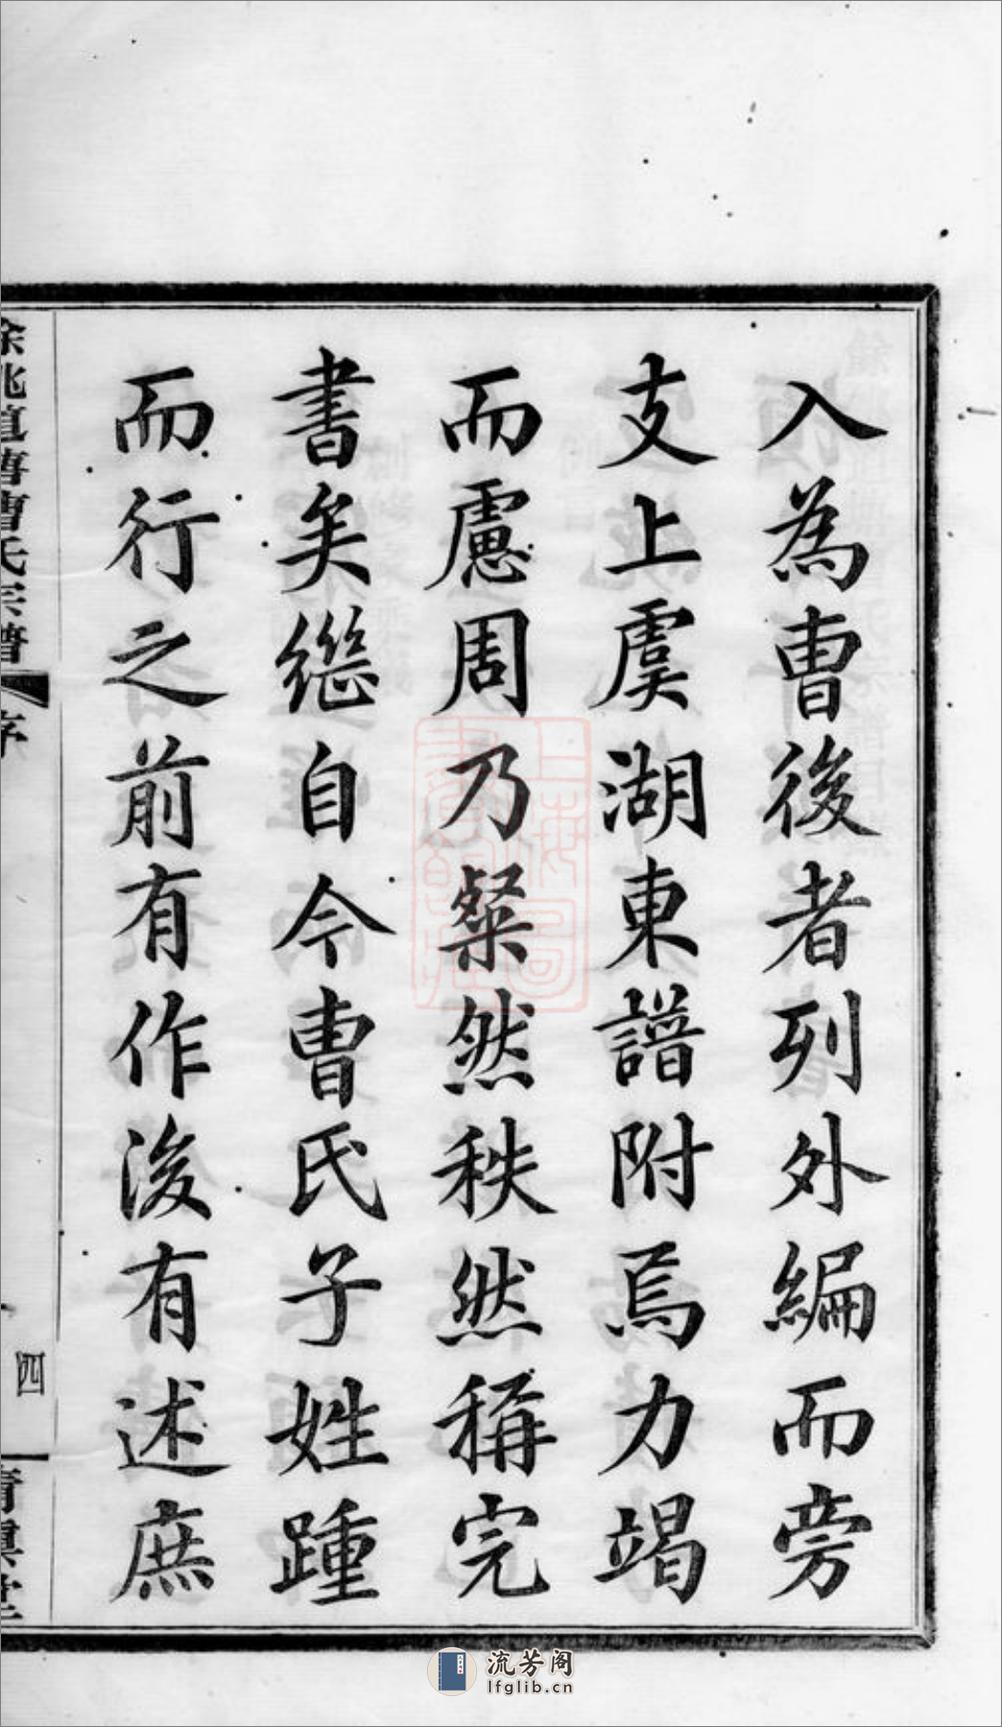 入為曺後者列外編而旁
支上虞湖東譜附焉力竭
而慮周乃粲然秩然稱完
書矣繼自今曺氏子姓踵
而行之前有作後有述庶
氏宗譜
序
四
上海圖書館藏
流芳阁
lfglib.cn